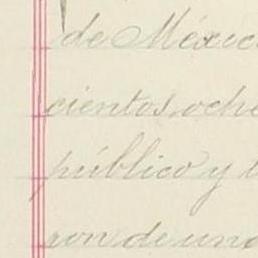 de México
cientos oche
público y t
ron de una